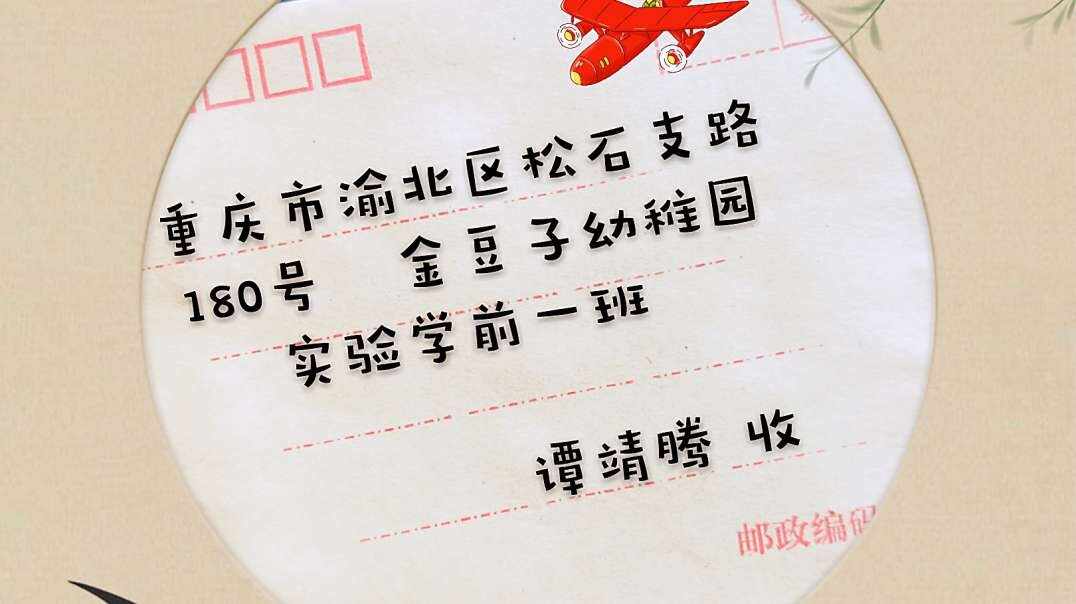 重庆市渝北区松石支路
180号 金豆子幼稚园
实验学前一班
谭靖腾 收
邮政编码